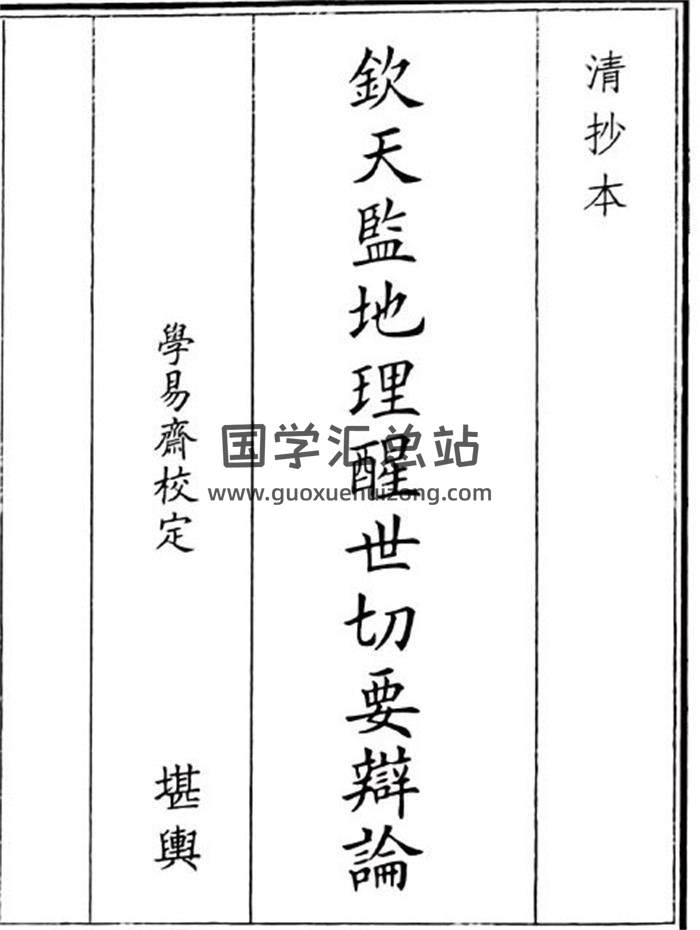 清抄本
欽天監地理醒世切要辯論
學易齋校定
堪輿
国学汇总站
www.guoxuehuizong.com